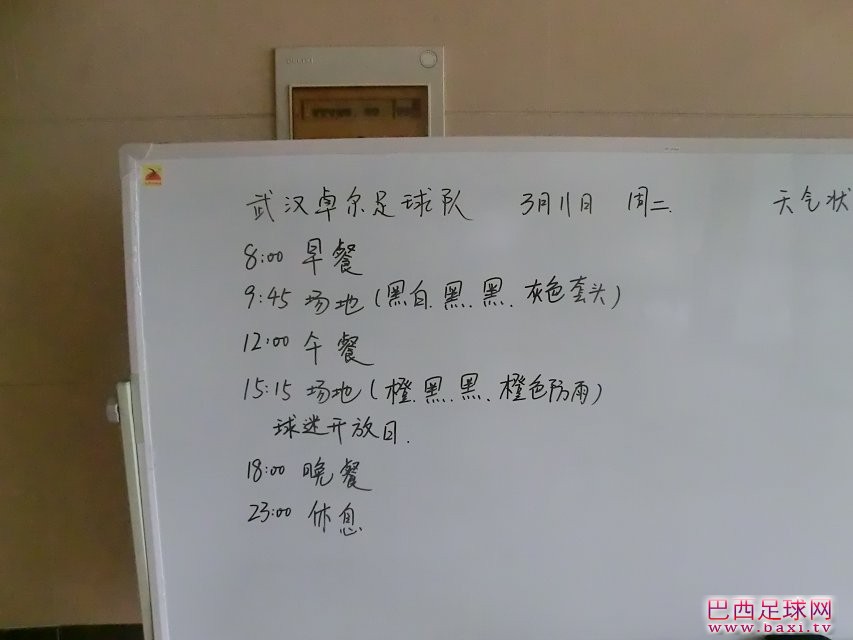 武汉卓尔足球队 3月11日 周二. 天气状
8:00 早餐
9:45 场地(黑白.黑.黑.灰色套头)
12:00 午餐
15:15 场地(橙.黑.黑.橙色防雨)
球迷开放日.
18:00 晚餐
23:00 休息
巴西足球网
www.baxi.tv